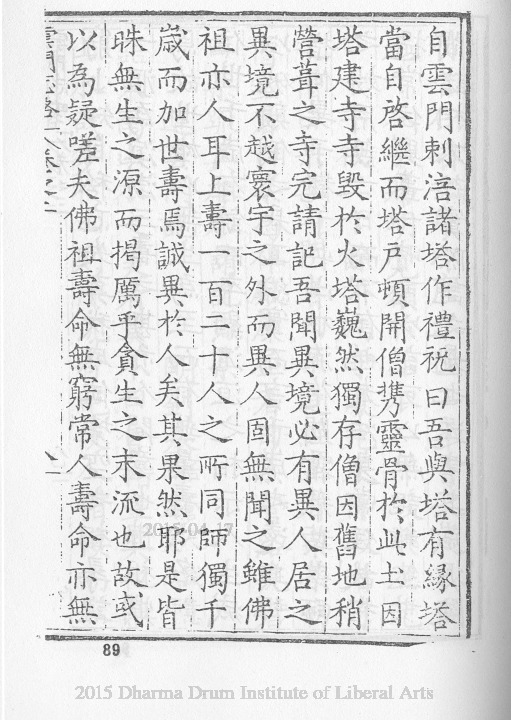 自雲門刺涪諸塔作禮祝曰吾與塔有緣塔
當自啓繼而塔戶頓開僧携靈骨於此土因
塔建寺寺毀於火塔巍然獨存僧因舊地稍
營葺之寺完請記吾聞異境必有異人居之
異境不越寰宇之外而異人固無聞之雖佛
祖亦人耳上壽一百二十人之所同師獨千
歲而加世壽焉誠異於人矣其果然耶是皆
昧無生之源而揭厲乎貪生之末流也故或
以為疑嗟夫佛祖壽命無窮常人壽命亦無
雲門志略
2015-04-17
89
2015 Dharma Drum Institute of Liberal Arts